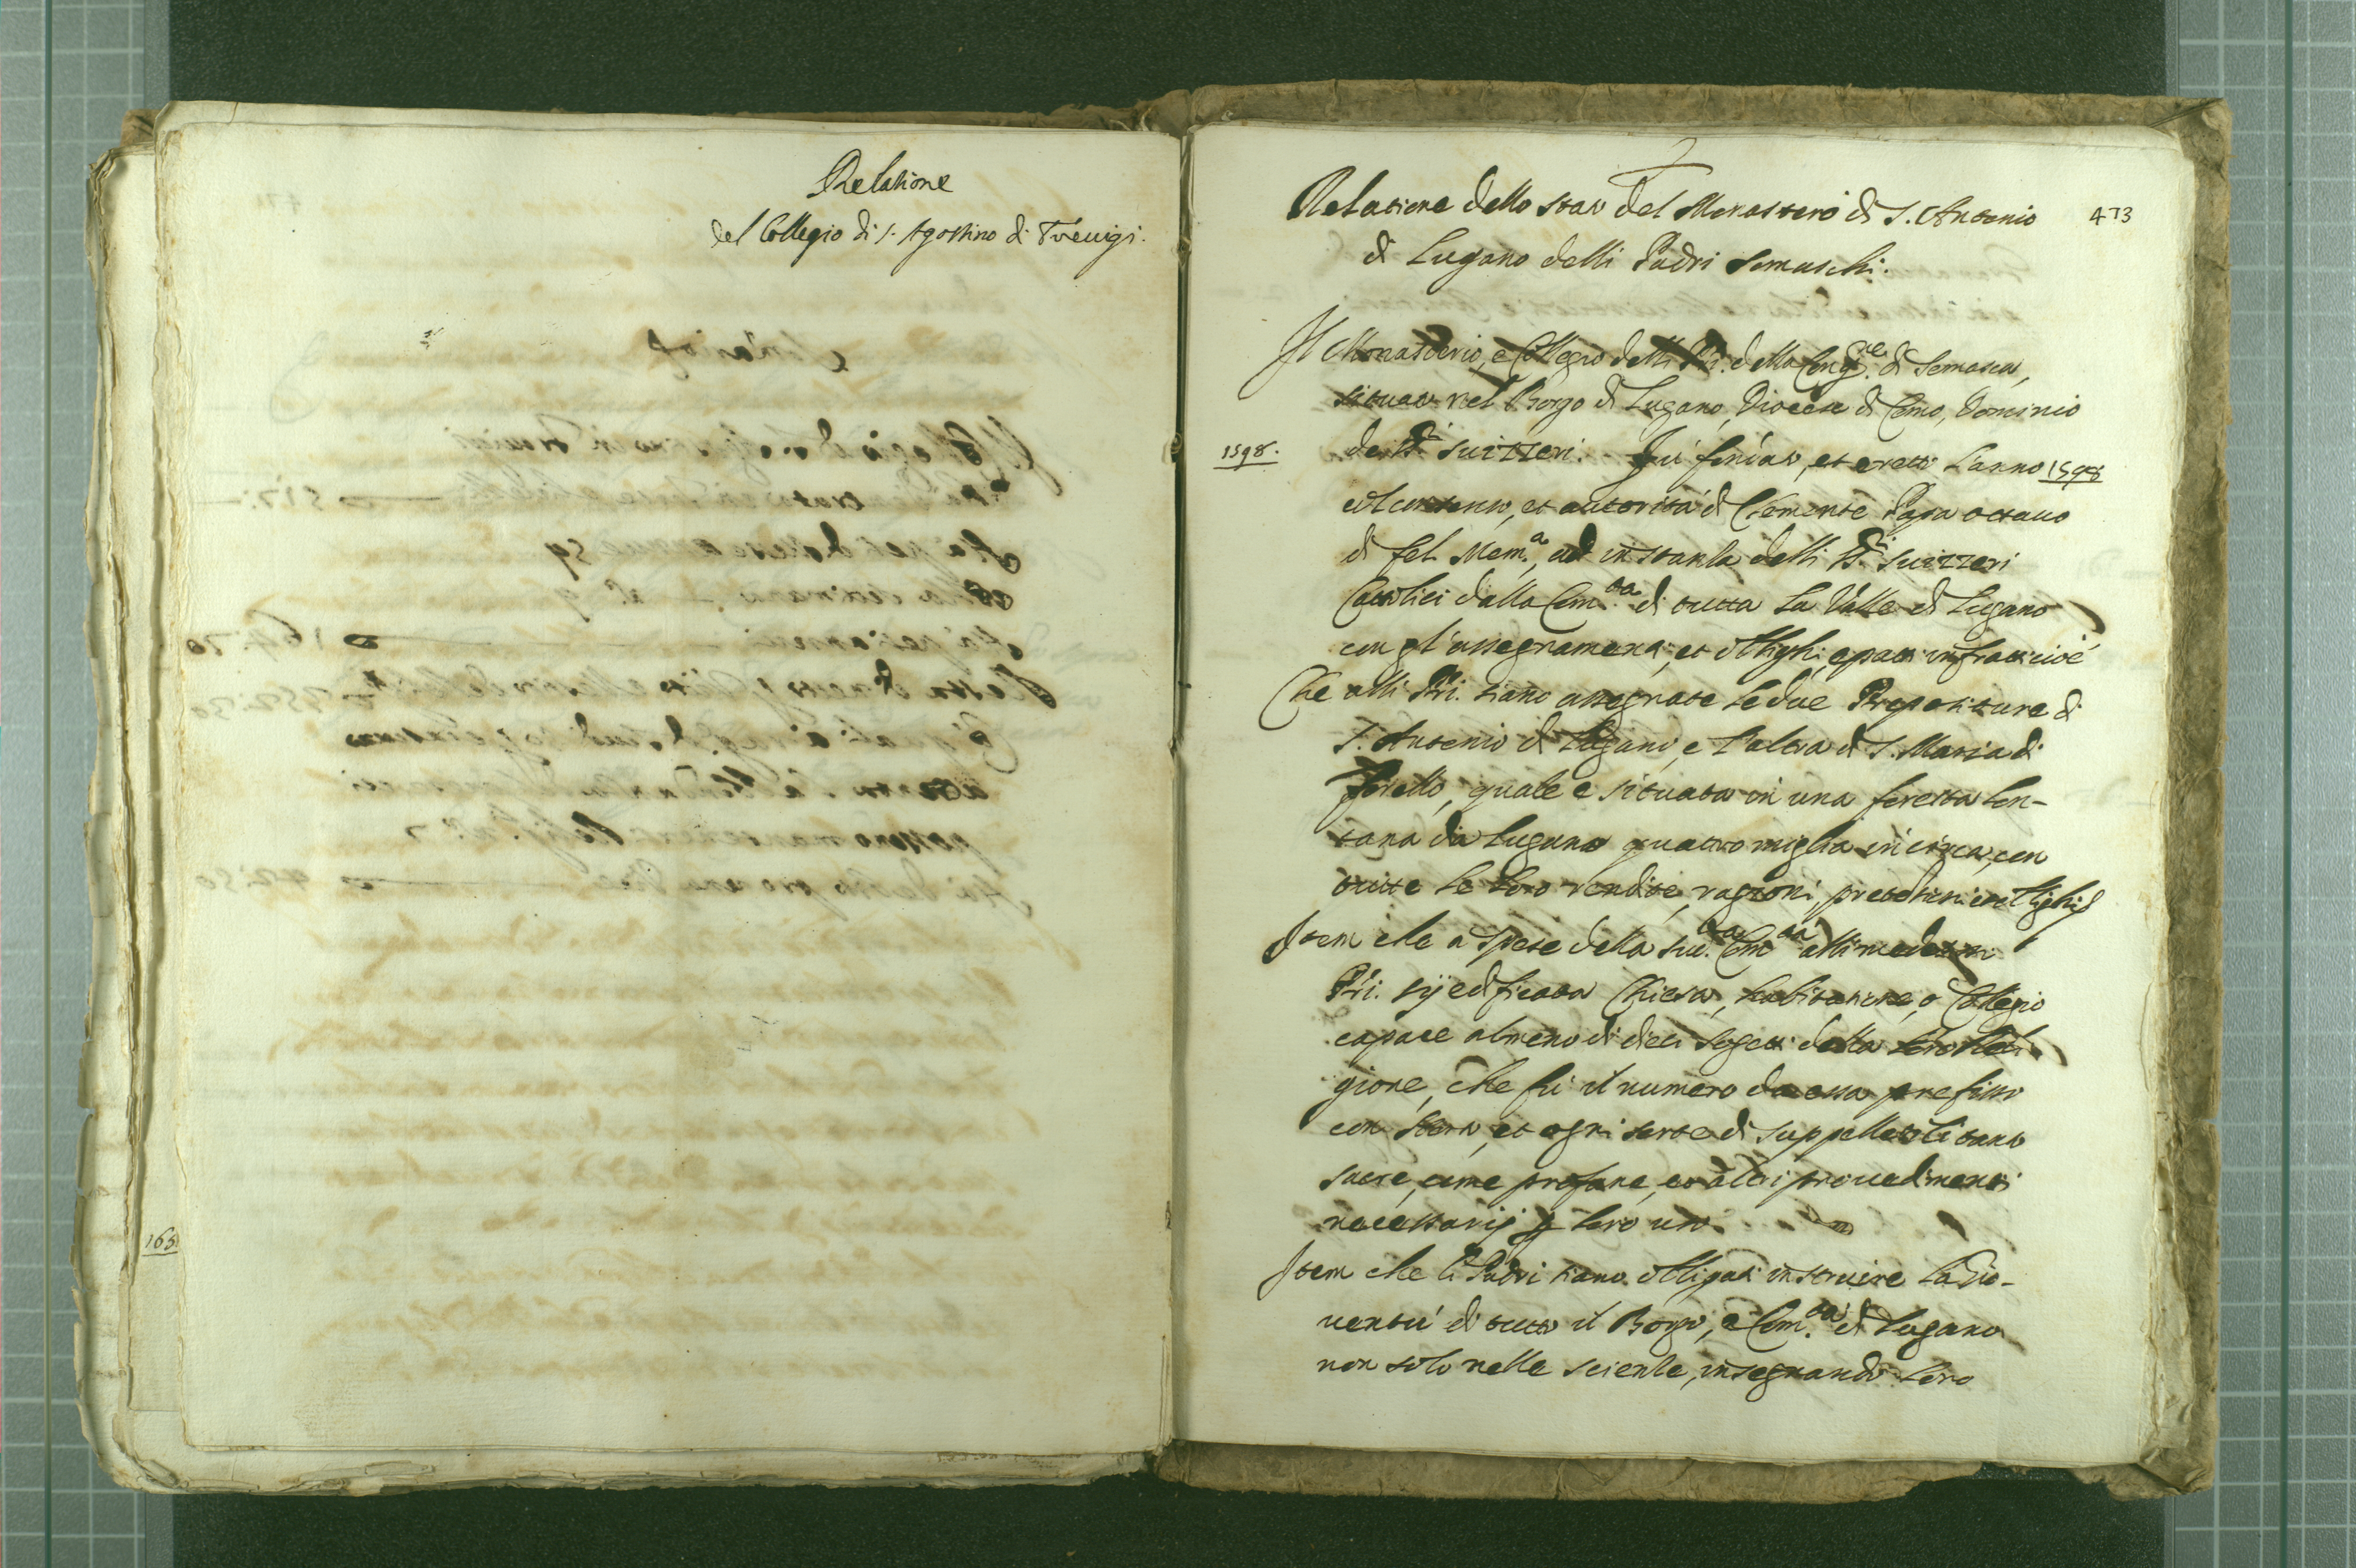 Relatione
del Collegio di S. Agostino di Treuigi.
163
Relatione dello stato del Monastero di S. Antonio
473
di Lugano delli Padri Somaschi.
Il Monasterio, e Collegio delli PP. della Cong.ne di Somasca,
situato nel Borgo di Lugano, Diocese di Como, Dominio
1598.
de SS.ri Suizzeri. Fù fondato, et eretto l'anno 1598
col consenso, et autorità di Clemente Papa ottauo
di fel. mem.a, ad instanza delli SS.ri Suizzeri
Cattolici dalla Com.tà di tutta la Valle di Lugano
con gl'assegnamenti, et oblighi, e patti infratti cioè
Che alli PPri. siano assegnate le due Prepositure di
S. Antonio di Lugano, e l'altra di S. Maria di
Torello, quale è situata in una foresta lon-
tana da Lugano quattro miglia in circa, con
tutte le loro rendite, ragioni, pretensioni et oblighi
Item che a spese della sud.ta Com.tà alli medesimi
PPri. sij edificata Chiesa, habitatione, o Collegio
capace almeno di dieci sogetti della loro Reli-
gione, che fu il numero da essa prefisso
con horto, et ogni sorte di suppelletili tanto
sacre, come profane, et altri prouedimenti
necessarij p loro uso.
Item che li Padri siano obligati instruire la Gio-
uentù di tutto il Borgo, e Com.tà di Lugano
non solo nelle scienze, insegnando loro